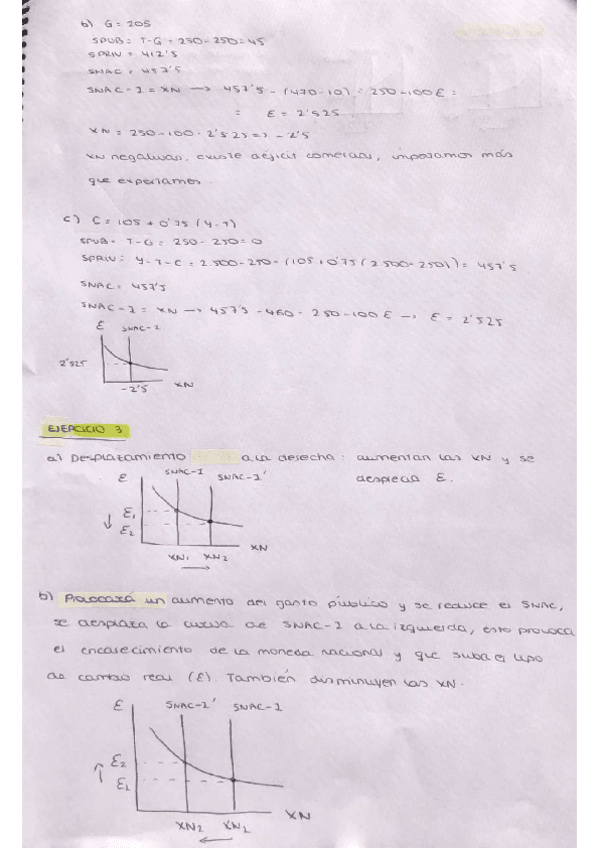 b) G = 205
SPUB = T-G = 250-250=45
SPRIV = 412'5
SNAC = 457'5
SNAC-I = XN → 457'5 - (470-10) = 250-100E =
= E = 2'525
XN = 250-100·2'525 => -2'5
XN negativas, existe déficit comercial, importamos más
que exportamos.
c) C = 105 + 0'75 (Y-T)
SPUB = T-G = 250-250=0
SPRIV = Y-T-C = 2500-250-(105+0'75(2500-250)) = 457'5
SNAC = 457'5
SNAC-I = XN → 457'5 - 460 = 250-100E → E = 2'525
E SNAC-I
2'525
-2'5 XN
EJERCICIO 3
a) Desplazamiento a la derecha: aumentan las XN y se
deprecia E.
E SNAC-I SNAC-I'
↓ E1
E2
XN
XN1 XN2
→
b) Provocará un aumento del gasto público y se reduce el SNAC,
se desplaza la curva de SNAC-I a la izquierda, esto provoca
el encarecimiento de la moneda nacional y que suba el tipo
de cambio real (E). También disminuyen las XN.
E SNAC-I' SNAC-I
↑ E2
E1
XN2 XN1 XN
←